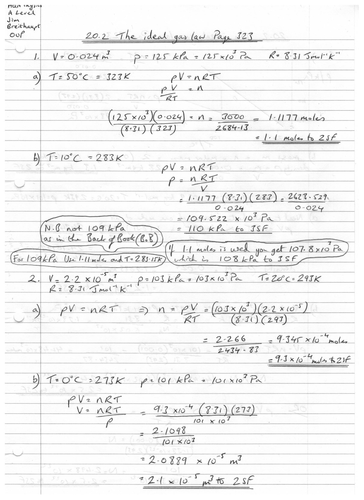 A Level
Jim
Breithaupt
OUP
20.2 The ideal gas law Page 323
1. V = 0.024 m³ p = 125 kPa = 125x10³ Pa R = 8.31 Jmol⁻¹K⁻¹
a) T = 50°C = 323K pV = nRT
pV/RT = n
(125x10³)(0.024)/(8.31)(323) = n = 3000/2684.13 = 1.1177 moles
= 1.1 moles to 2SF
b) T = 10°C = 283K pV = nRT
p = nRT/V
= 1.1177 (8.31)(283)/0.024 = 2628.529/0.024
= 109.522 x10³ Pa
= 110 kPa to 3SF
N.B not 109 kPa
as in the Back of Book (B.B)
For 109kPa Use 1.11 moles and T = 283.15K
If 1.1 moles is used you get 107.8x10³ Pa
which is 108 kPa to 3SF
2. V = 2.2 x10⁻⁵ m³ p = 103 kPa = 103x10³ Pa T = 20°C = 293K
R = 8.31 Jmol⁻¹K⁻¹
a) pV = nRT ⇒ n = pV/RT = (103x10³)(2.2x10⁻⁵)/(8.31)(293)
= 2.266/2434.83 = 9.345 x10⁻⁴ moles
= 9.3x10⁻⁴ moles to 2SF
b) T = 0°C = 273K p = 101 kPa = 101x10³ Pa
pV = nRT
V = nRT/p = 9.3x10⁻⁴ (8.31)(273)/101 x10³
= 2.1098/101x10³
= 2.0889 x10⁻⁵ m³
= 2.1 x10⁻⁵ m³ to 2SF